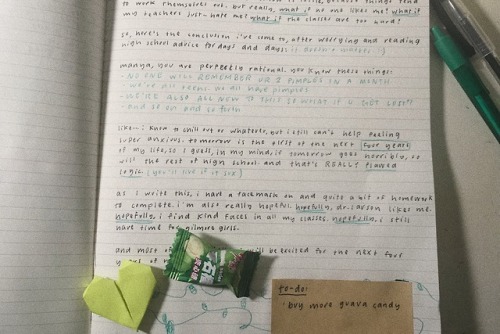 to work themselves out. but really, what if no one likes me? what if
my teachers just hate me? what if the classes are too hard?
so, here's the conclusion i've come to, after worrying and reading
high school advice for days and days: it doesn't matter!!
manya, you are perfectly rational. you know these things:
-NO ONE WILL REMEMBER UR 2 PIMPLES IN A MONTH
-we're all teens. we all have pimples
-WE'RE ALSO ALL NEW TO THIS SO WHAT IF U GET LOST?
-and so on and so forth
like-- i know to chill out or whatever, but i still can't help feeling
super anxious. tomorrow is the first of the next four years
of my life, so i guess, in my mind, if tomorrow goes horribly, so
will the rest of high school and that's REALLY flawed
logic (you'll like it ok)
as i write this, i have a facemask on and quite a bit of homework
to complete. i'm also really hopeful. hopefully, dr. larson likes me.
hopefully, i find kind faces in all my classes. hopefully, i still
have time for gilmore girls.
and most of will be excited for the next four
to-do:
· buy more guava candy